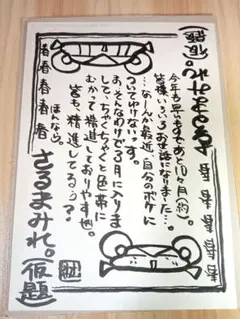 さるまみれ。(仮題)
今年も早いものであと10ヶ月(約)。
皆様いろいろお世話になりました…。
…なーんか最近、自分のボケに
ついてゆけないっす。
ま、そんなわけで3月になりま
して、ちゃくちゃくと色一帯に
むかって精進しておりやす(嘘)。
皆も、精進してるぅ?
ほんなら。
春春春春春
さるまみれ。(仮題)